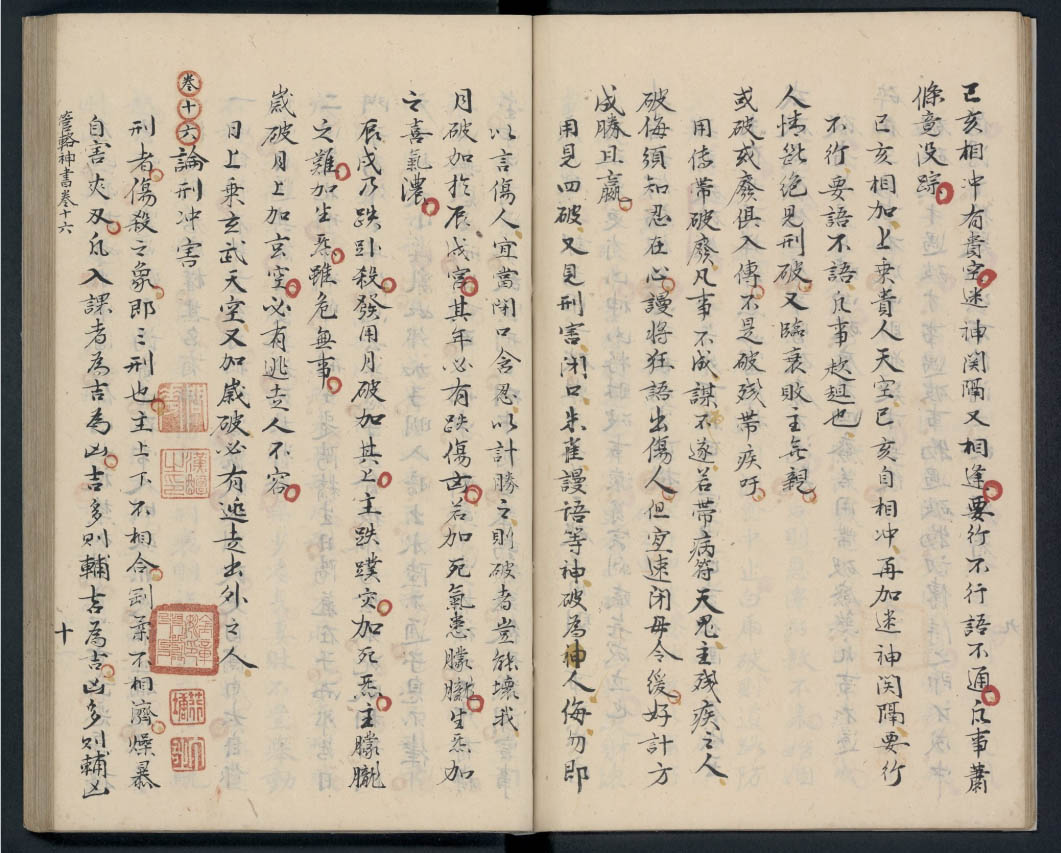 己亥相冲有貴空迷神関隔又相逢要行不行語不通凡事蕭
條竟没踪
己亥相加上乗貴人天空已亥自相冲再加迷神関隔要行
不行要語不語凡事趑趄也
人情皆絶見刑破又臨衰敗主無親
或破或廢俱入傳不是破残帯疾吁
用傳帯破廢凡事不成謀不遂若帯病符天鬼主残疾之人
破侮須知忍在心謾將狂語出傷人但宜速闭毋令後好計方
成勝且贏
用見四破又見刑害闭口朱雀謾语等神破為神人侮勿即
以言傷人宜當闭口含忍以計勝之則破者豈能壊我
月破加於辰戌宮其年必有跌傷凶若加死氣患朦朧生炁加
之喜氣濃
辰戌乃跌卧殺發用月破加其上主跌蹼灾加死炁主朦朧
之難加生炁雖危無事
歲破月上加玄空必有逃走人不容
日上乗玄武天空又加歲破必有逃走出外之人
卷十六論刑冲害
刑者傷殺之象即三刑也主上下不相合剛柔不相濟燥暴
自害夾刄凡入課者為吉為凶吉多則輔吉為吉凶多則輔凶
管輅神書卷十六
十